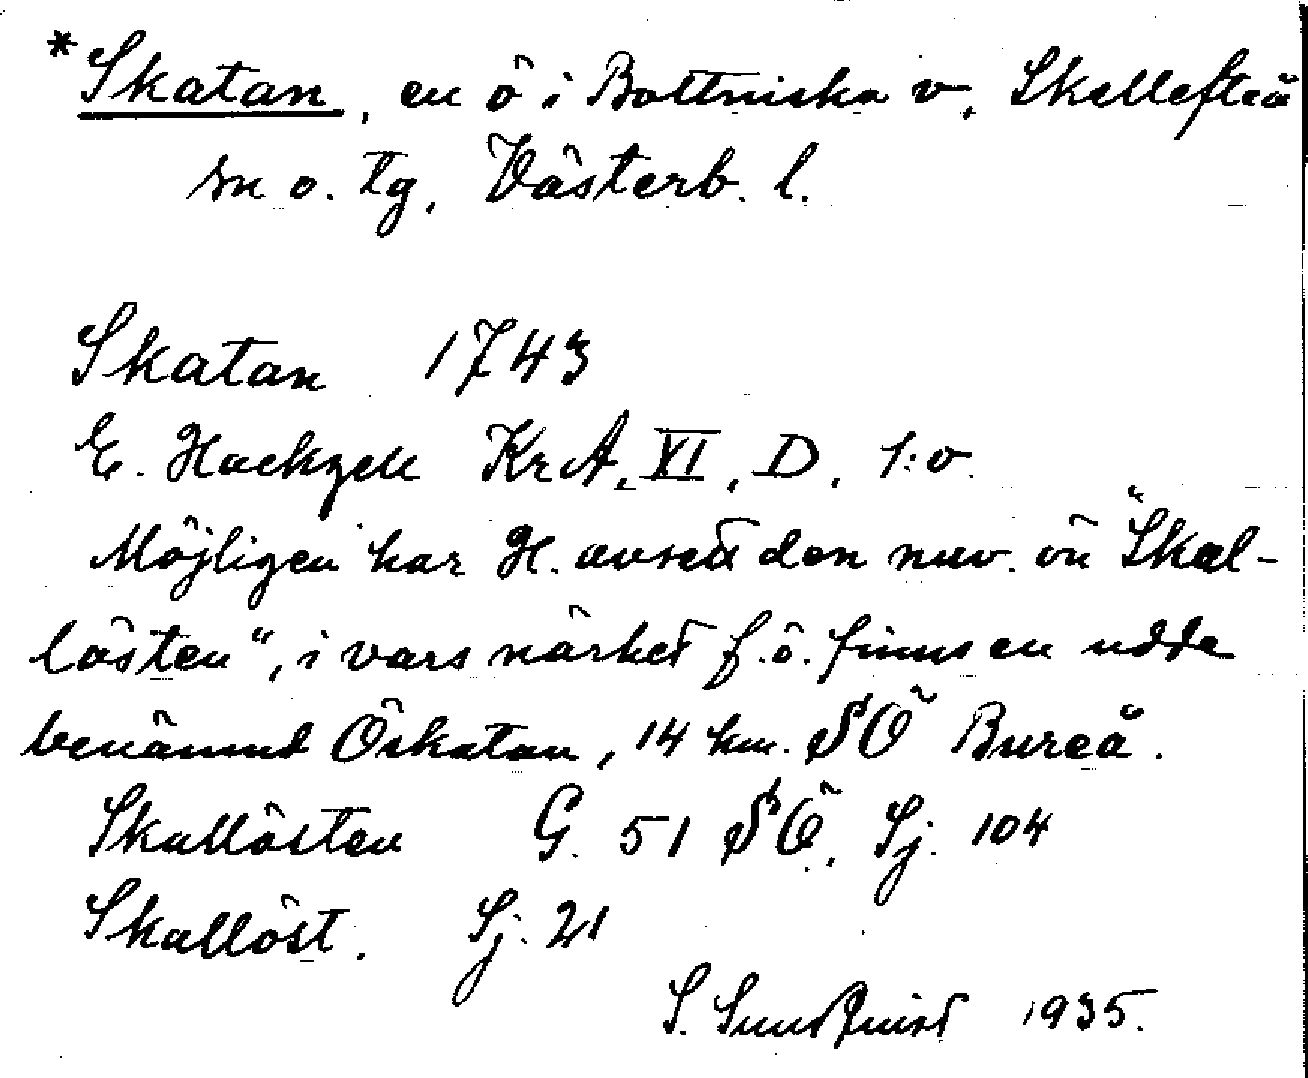 *Skatan, en ö i Bottniska v, Skellefteå
sn o. tg, Västerb. l.
Skatan 1743
E. Hackzell KrA, XI, D, 1:o
Möjligen har H. avsett den nuv. ön "Skal-
lösten", i vars närhet f.ö. finns en udde
benämnd Öskatan, 14 km. SÖ Bureå.
Skallösten G. 51 SÖ, Sj. 104
Skallöst. Sj. 21
S. Sundqvist 1935.